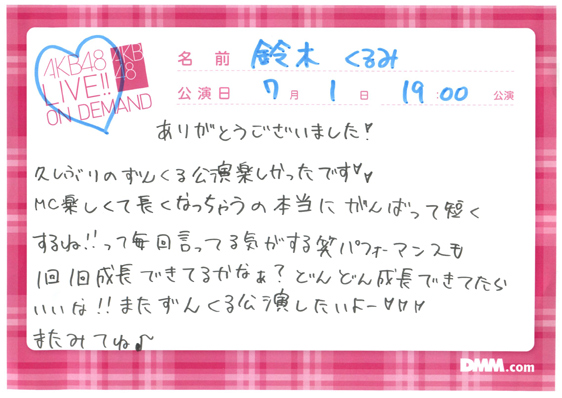 AKB48
LIVE!!
ON DEMAND
AKB
48
名前 鈴木 くるみ
公演日 7月 1日 19:00 公演
ありがとうございました!♥
久しぶりのずんくる公演楽しかったです♥♥
MC楽しくて長くなっちゃうの本当にがんばって短く
するね!!って毎回言ってる気がする笑パフォーマンスも
1回1回成長できてるかなぁ?どんどん成長できてたら
いいな!!またずんくる公演したいよー♥♥♥
またみてね♪
DMM.com